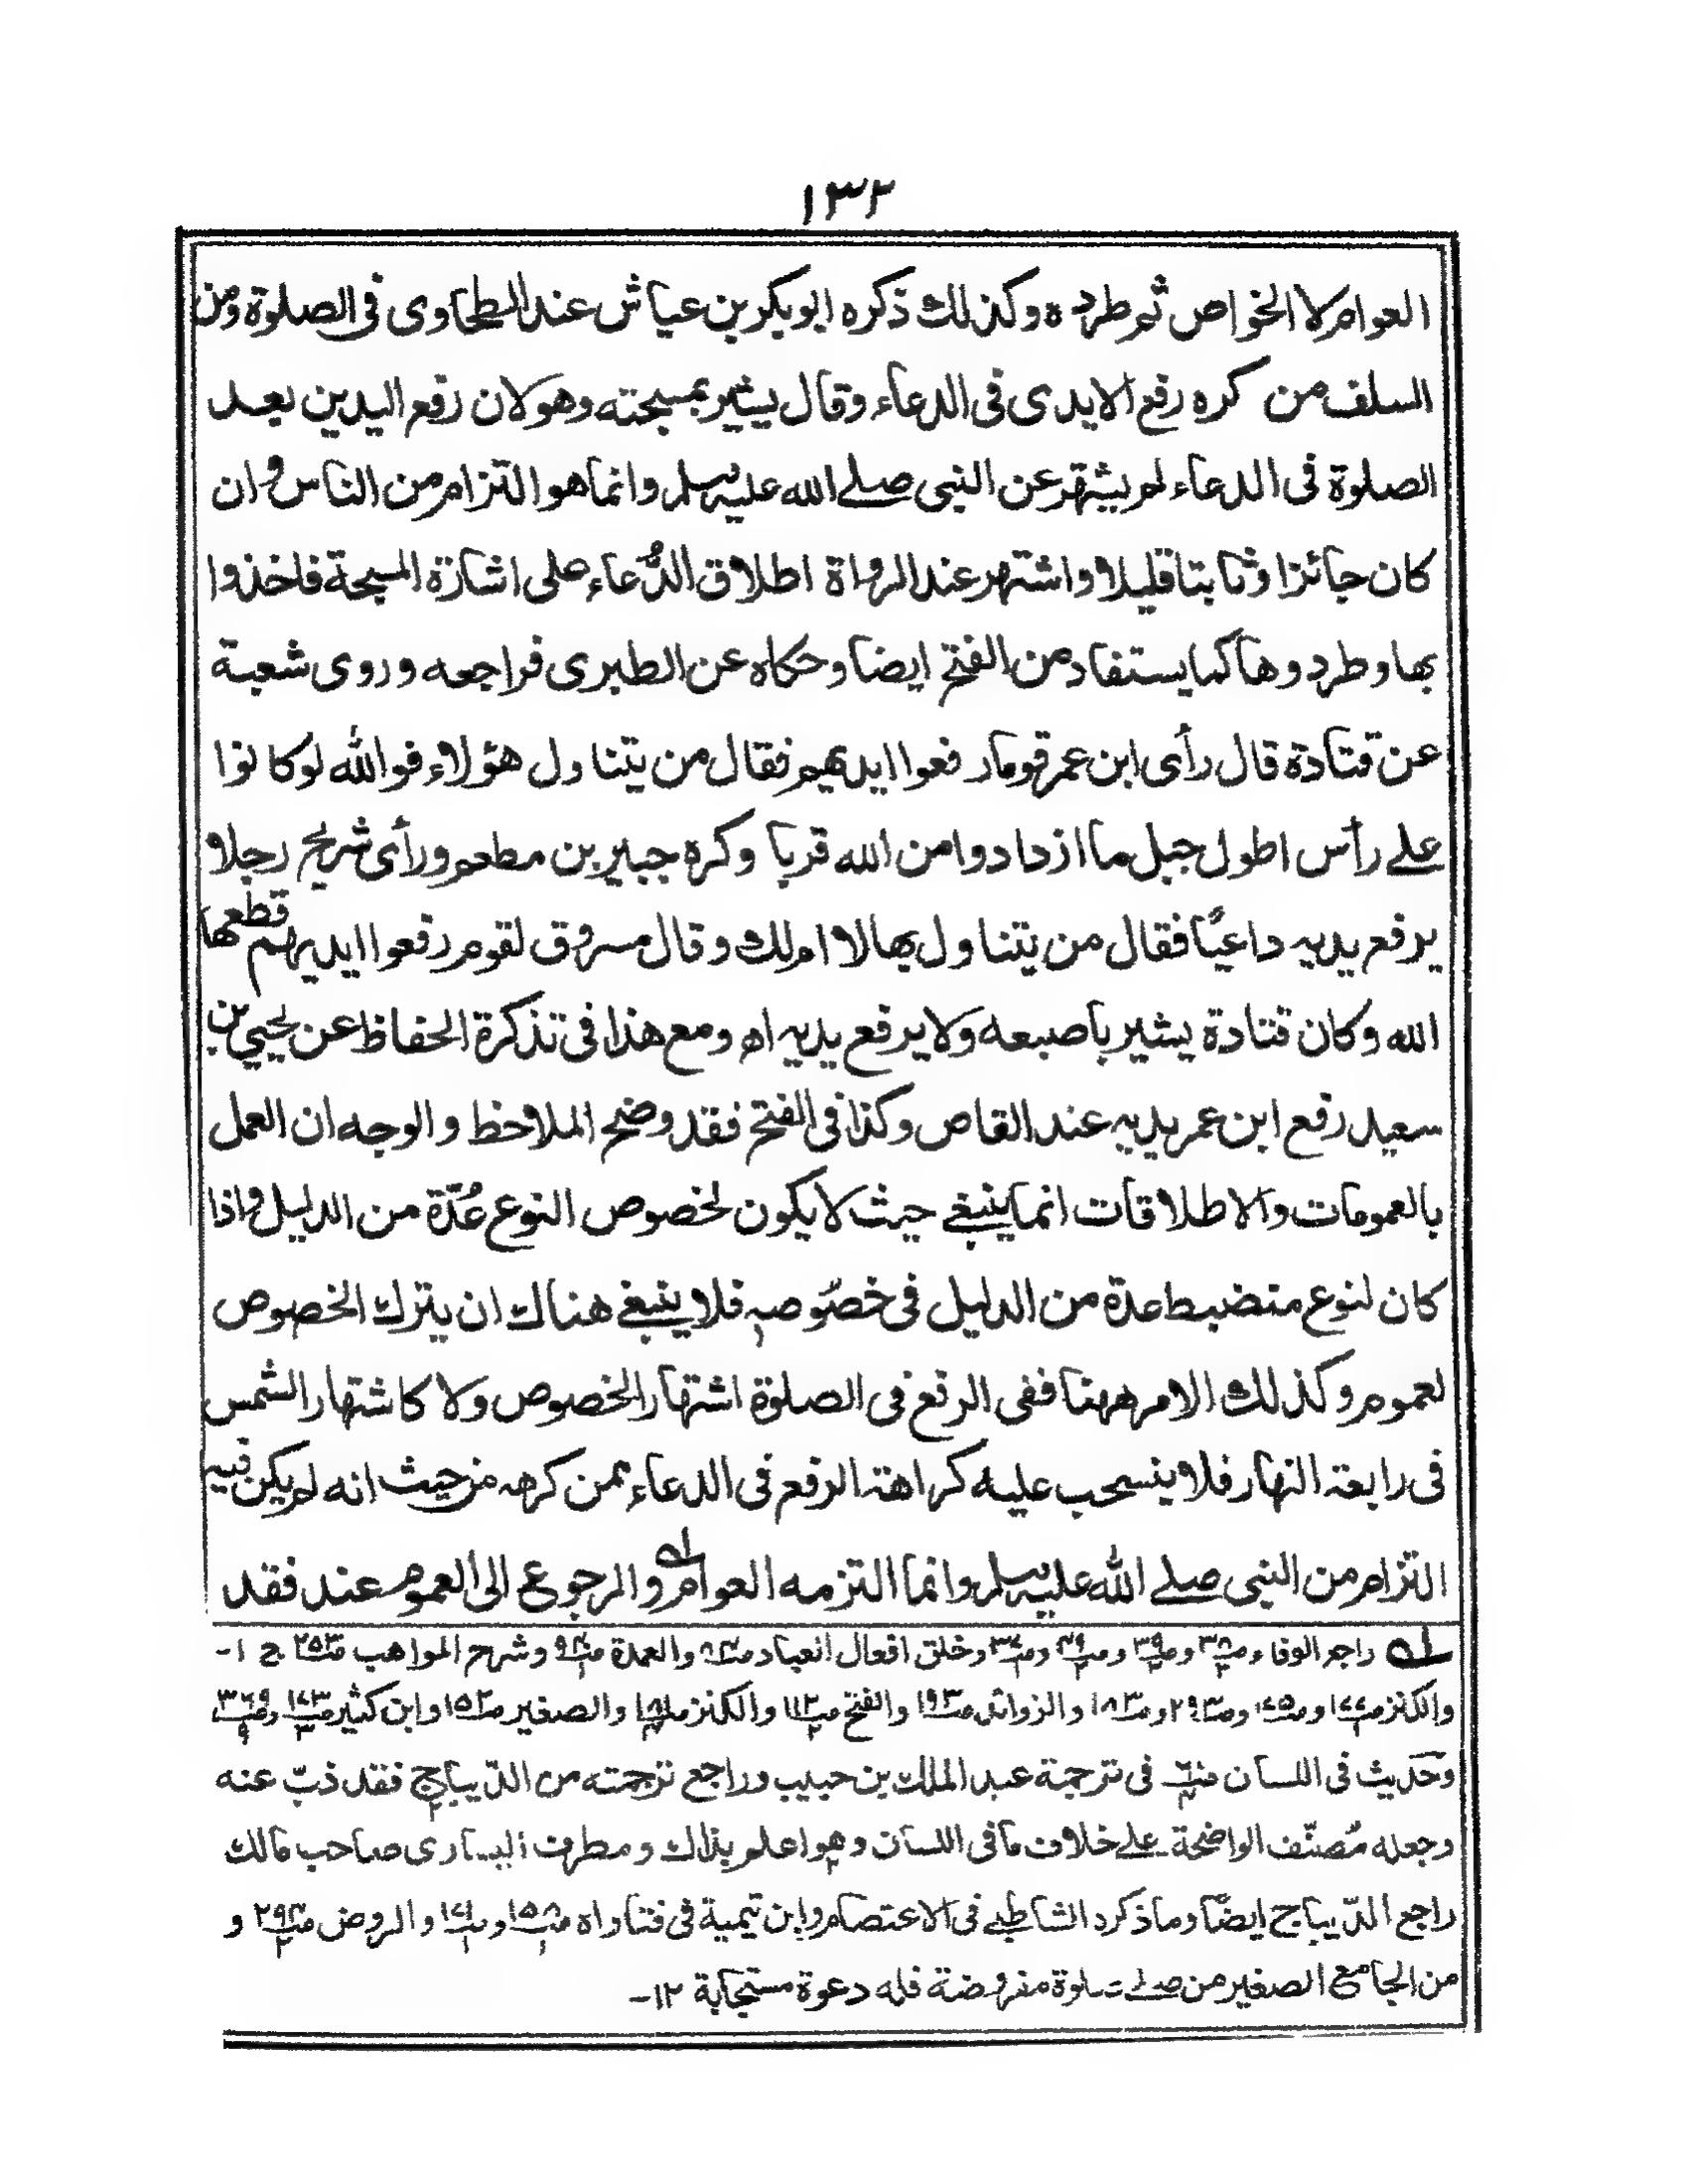 ١٣٢
العوام لا الخواص ثم طرده وكذلك ذكره ابو بكر بن عياش عند الطحاوى فى الصلوة ومن
السلف من كره رفع الايدى فى الدعاء وقال يشير بمسبحته وهو لان رفع اليدين بعد
الصلوة فى الدعاء لم يشتهر عن النبى صلے الله عليه وسلم وانما هو التزام من الناس وان
كان جائزا وثابتا قليلا واشتهر عند الرواة اطلاق الدُّعاء على اشارة المسبحة فاخذوا
بها وطردوها كما يستفاد من الفتح ايضا وحكاه عن الطبرى فراجعه وروى شعبة
عن قتادة قال رأى ابن عمر قوما رفعوا ايديهم فقال من يتناول هؤلاء فوالله لو كانوا
علے رأس اطول جبل ما ازدادوا من الله قربا وكره جبير بن مطعم ورأى شريح رجلا
يرفع يديه داعيًا فقال من يتناول بها لا ام لك وقال مسروق لقوم رفعوا ايديهم قطعها
الله وكان قتادة يشير باصبعه ولا يرفع يديه اه ومع هذا فى تذكرة الحفاظ عن يحيي بن
سعيد رفع ابن عمر يديه عند القاص وكذا فى الفتح فقد وضح الملاحظ والوجه ان العمل
بالعمومات والاطلاقات انما ينبغے حيث لا يكون لخصوص النوع عُدّة من الدليل واذا
كان لنوع منضبط عدة من الدليل فى خصوصه فلا ينبغے هناك ان يترك الخصوص
لعموم وكذلك الامر ههنا ففى الرفع فى الصلوة اشتهار الخصوص ولا كاشتهار الشمس
فى رابعة النهار فلا ينسحب عليه كراهة الرفع فى الدعاء ممن كرهه من حيث انه لم يكن فيه
التزام من النبى صلے الله عليه وسلم وانما التزمه العوام له والرجوع الى العموم عند فقد
له راجع الوفاء وخلق افعال العباد والعمدة وشرح المواهب ج ١-
والكنز والزوائد والفتح والكنز والصغير وابن كثير
وحديث فى اللسان فى ترجمة عبد الملك بن حبيب وراجع ترجمته من الدّيباج فقد ذبّ عنه
وجعله مُصنّف الواضحة علے خلاف ما فى اللسان وهو اعلم بذلك ومطرف اليسارى صاحب مالك
راجع الدّيباج ايضًا وما ذكره الشاطبے فى الاعتصام وابن تيمية فى فتاواه والروض و
من الجامع الصغير من صلے صلوة مفروضة فله دعوة مستجابة ١٢-